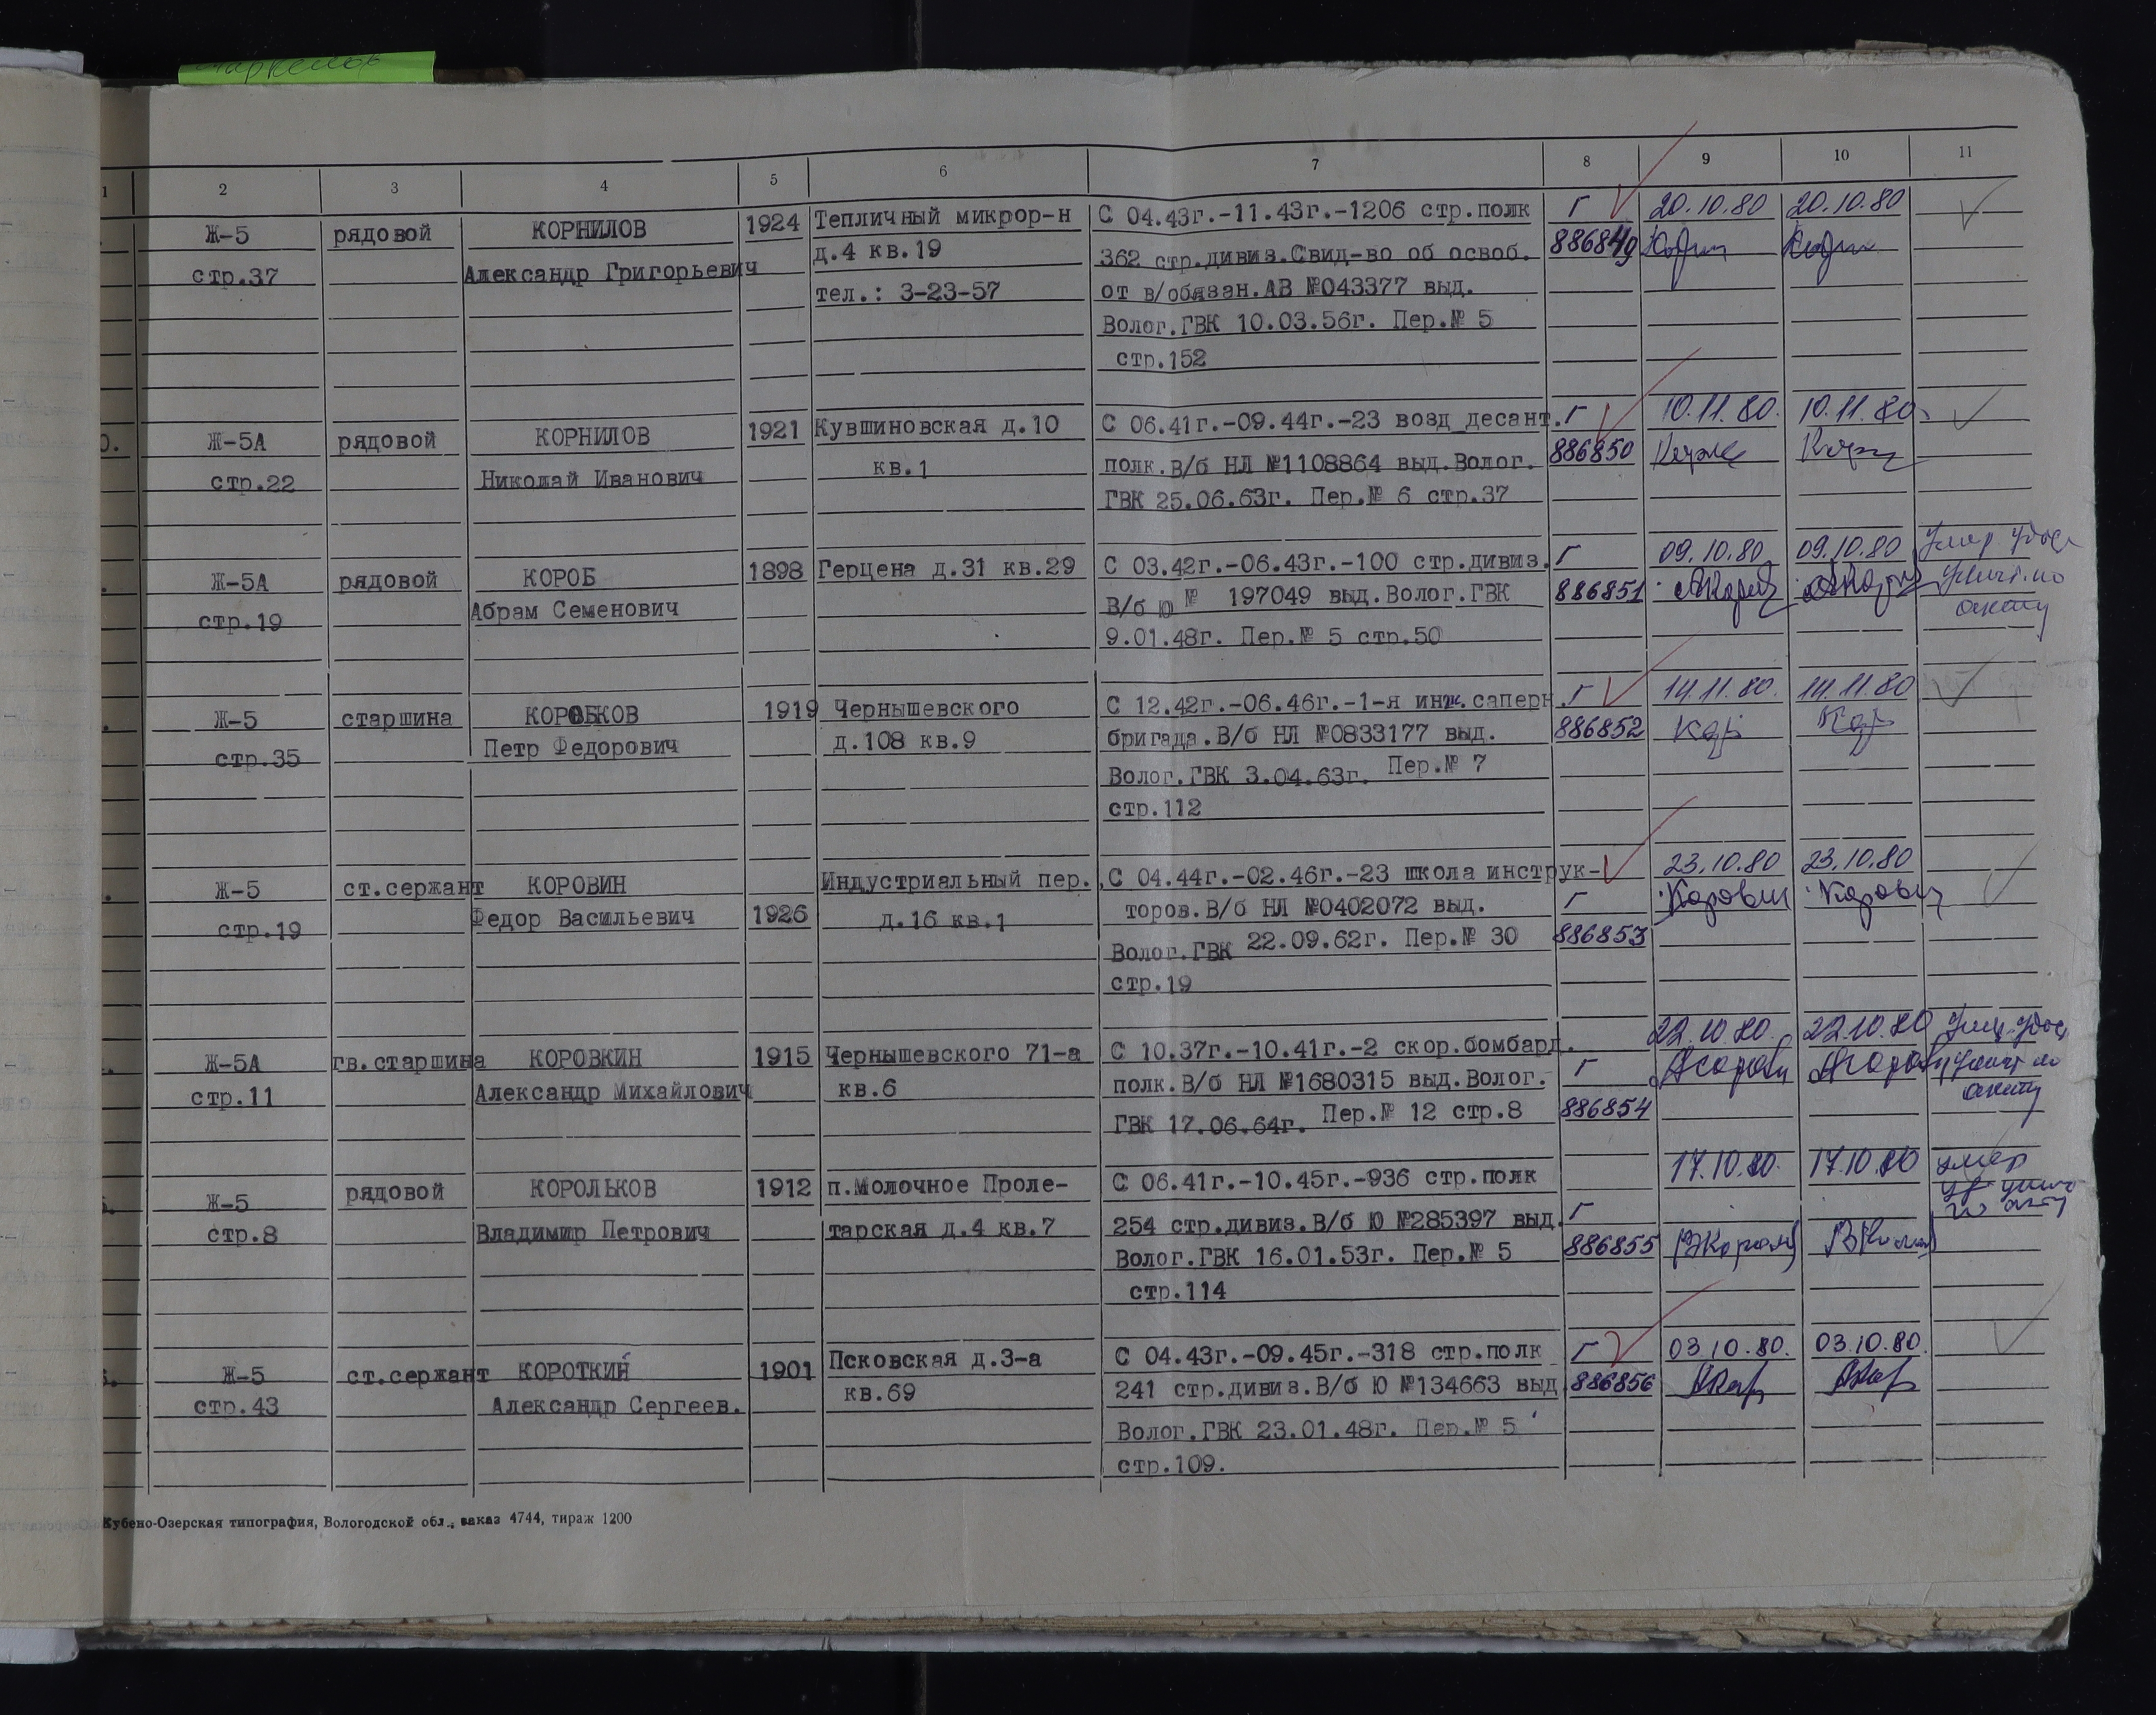 1 2 3 4 5 6 7 8 9 10 11
Ж-5 рядовой КОРНИЛОВ 1924 Тепличный микрор-н С 04.43г.-11.43г.-1206 стр.полк Г 20.10.80 20.10.80
стр.37 Александр Григорьевич д.4 кв.19 362 стр.дивиз.Свид-во об освоб. 886849
тел.: 3-23-57 от в/обязан.АВ №043377 выд.
Волог.ГВК 10.03.56г. Пер.№ 5
стр.152
0. Ж-5А рядовой КОРНИЛОВ 1921 Кувшиновская д.10 С 06.41г.-09.44г.-23 возд десант. Г 10.11.80. 10.11.80
стр.22 Николай Иванович кв.1 полк.В/б НЛ №1108864 выд.Волог. 886850
ГВК 25.06.63г. Пер.№ 6 стр.37
Ж-5А рядовой КОРОБ 1898 Герцена д.31 кв.29 С 03.42г.-06.43г.-100 стр.дивиз. Г 09.10.80 09.10.80
стр.19 Абрам Семенович В/б Ю № 197049 выд.Волог.ГВК 886851
9.01.48г. Пер.№ 5 стр.50
Ж-5 старшина КОРОБКОВ 1919 Чернышевского С 12.42г.-06.46г.-1-я инж.саперн. Г 14.11.80. 14.11.80
стр.35 Петр Федорович д.108 кв.9 бригада.В/б НЛ №0833177 выд. 886852
Волог.ГВК 3.04.63г. Пер.№ 7
стр.112
Ж-5 ст.сержант КОРОВИН Индустриальный пер. С 04.44г.-02.46г.-23 школа инструк- 23.10.80 23.10.80
стр.19 Федор Васильевич 1926 д.16 кв.1 торов.В/б НЛ №0402072 выд. Г Коровин Коровин
Волог.ГВК 22.09.62г. Пер.№ 30 886853
стр.19
Ж-5А гв.старшина КОРОВКИН 1915 Чернышевского 71-а С 10.37г.-10.41г.-2 скор.бомбард. 22.10.80. 22.10.80
стр.11 Александр Михайлович кв.6 полк.В/б НЛ №1680315 выд.Волог. Г
ГВК 17.06.64г. Пер.№ 12 стр.8 886854
Ж-5 рядовой КОРОЛЬКОВ 1912 п.Молочное Проле- С 06.41г.-10.45г.-936 стр.полк 17.10.80. 17.10.80 умер
стр.8 Владимир Петрович тарская д.4 кв.7 254 стр.дивиз.В/б Ю №285397 выд. Г
Волог.ГВК 16.01.53г. Пер.№ 5 886855
стр.114
Ж-5 ст.сержант КОРОТКИЙ 1901 Псковская д.3-а С 04.43г.-09.45г.-318 стр.полк Г 03.10.80. 03.10.80.
стр.43 Александр Сергеев. кв.69 241 стр.дивиз.В/б Ю №134663 выд 886856
Волог.ГВК 23.01.48г. Пер.№ 5
стр.109.
Кубено-Озерская типография, Вологодской обл., заказ 4744, тираж 1200